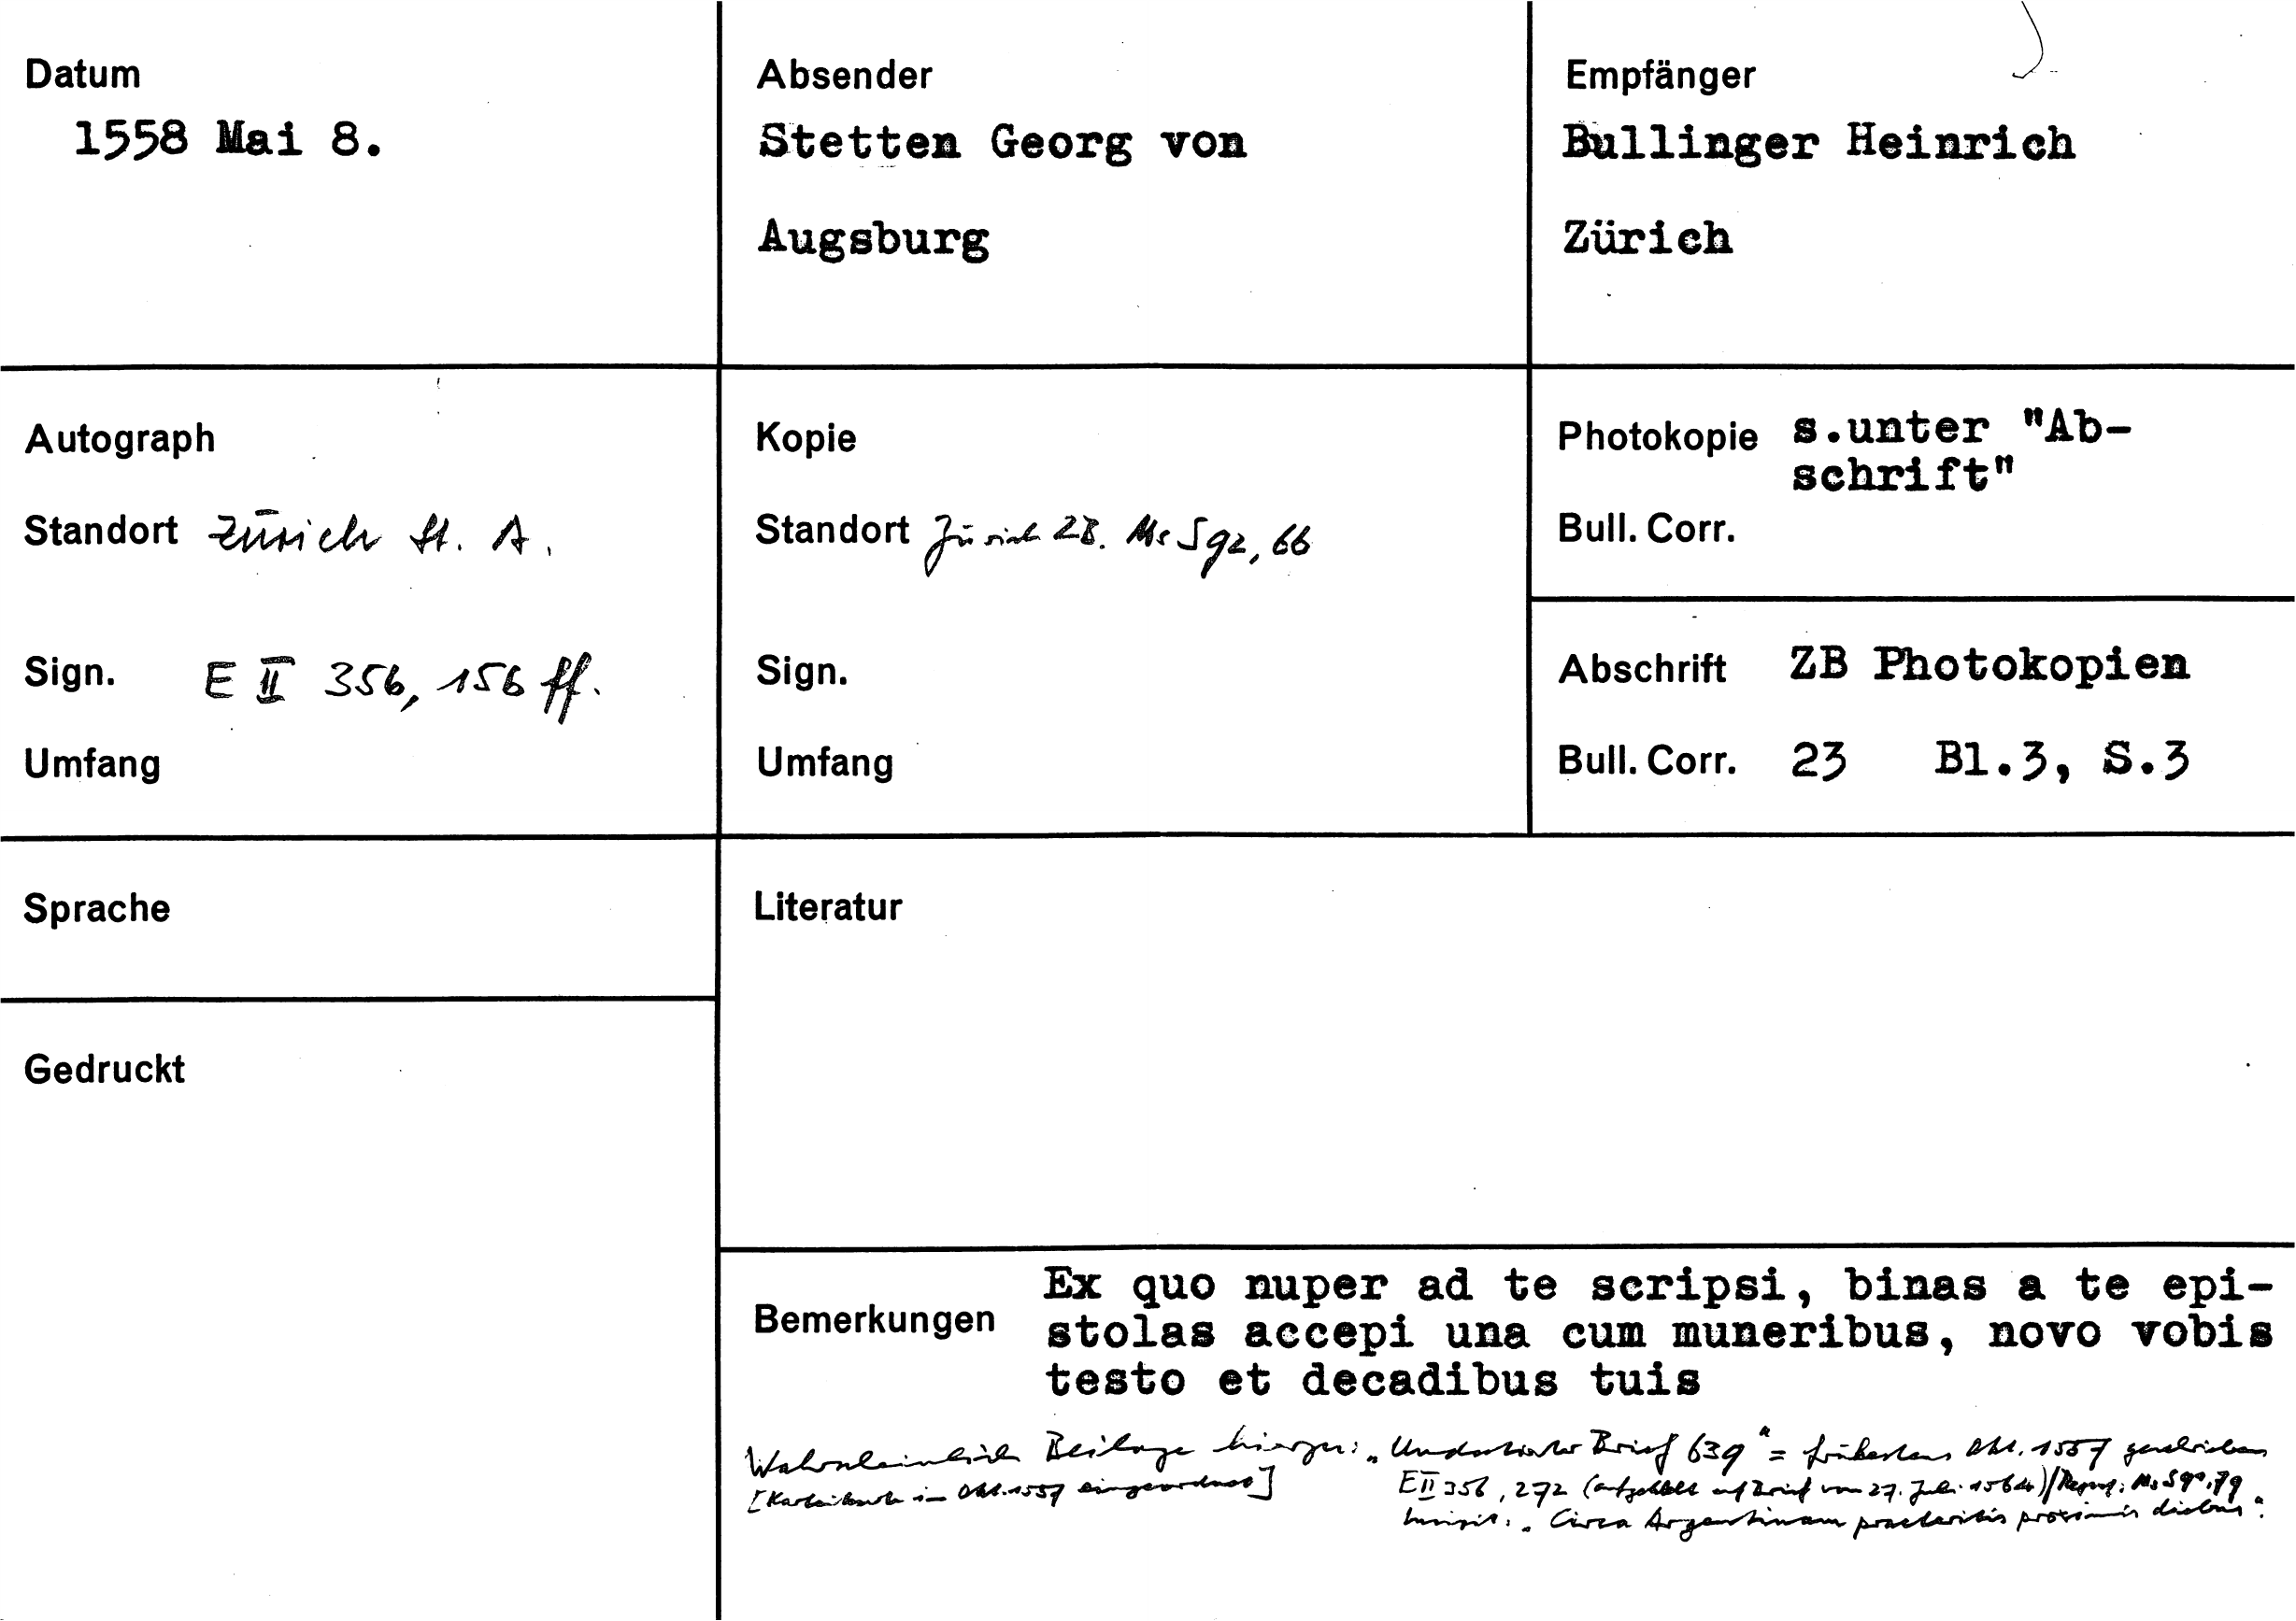 Datum
1558 Mai 8.
Absender
Stetten Georg von
Augsburg
Empfänger
Bullinger Heinrich
Zürich
Autograph
Standort Zürich St. A.
Sign. E II 356, 156 ff.
Umfang
Kopie
Standort Zürich ZB. Ms S 92, 66
Sign.
Umfang
Photokopie s.unter "Ab-
schrift"
Bull. Corr.
Abschrift ZB Photokopien
Bull. Corr. 23 Bl.3, S.3
Sprache
Gedruckt
Literatur
Bemerkungen
Ex quo nuper ad te scripsi, binas a te epi-
stolas accepi una cum muneribus, novo vobis
testo et decadibus tuis
Wahrscheinlich Beilage hierzu: „Undatierter Brief 639" = frühestens Okt. 1557 geschrieben
[Karteikarte in Okt. 1557 eingeordnet]
E II 356, 272 (aufgeklebt auf Brief vom 27. Juli 1564) / Ms S 90, 79
Incipit: „Circa Argentinam praeteritis proximis diebus".